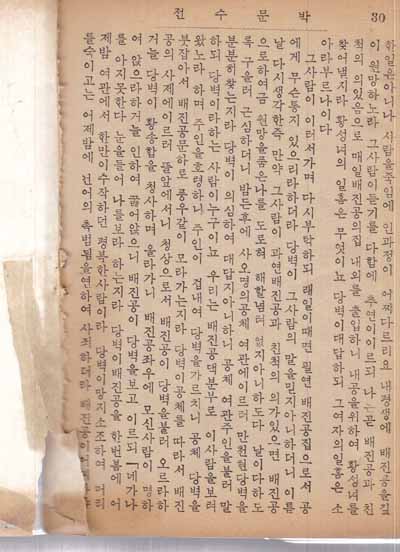 30
박문수전
한일은아니나 사람을죽임에 인과정이 어찌다르리요 내평생에 배진공을깊
이 원망하노라 그사람이듣기를다함에 추연이이르되 나는곧 배진공과 친
척의 의있음으로 매일배진공의집 내외를 출입하니 내공을위하여 황성녀를
찾어낼지라 황성녀의 일홈은 무엇이뇨 당벽이대답하되 그여자의일홈은 소
아라부르나이다
그사람이 이러서가며 다시부탁하되 래일이때면 필연 배진공집으로서 공
에게 무슨통지 있으리라하더라 당벽이 그사람의 말을믿지아니하더니 이튼
날 다시생각한즉 만약 그사람이 과연배진공과 친척의 의가있으면 배진공
으로하여금 원망을품은나를 도로혀 해할념려 없지아니하도다 날이다하도
록 구을러 근심하더니 밤든후에 사오명의공체 여관에이르러 만천현당벽을
분분히찾는지라 당벽이 의심하여 대답지아니하니 공체 여관주인을불러 말
하되 당벽이라하는 사람이누구이뇨 우리는 배진공댁분부로 이사람을보러
왔노라 하며 주인을호령하니 주인이 겁내여 당벽을가르치니 공체 당벽을
붓잡아서 배진공문하로 풍우같이 모라가는지라 당벽이공체를 따라서 배진
공의 사제에이르러 뜰앞에서니 청상으로서 배진공이 당벽을불러 오르라하
거늘 당벽이 황송함을 청사하며 올라가니 배진공좌우에 모신사람이 명하
여 앉으라하거늘 인하여 꿇어앉으니 배진공이 당벽을보고 이르되「네가나
를 아지못한다 눈을들어 나를보라 하는지라 당벽이배진공을 한번봄에 어
제밤 여관에서 한만이수작하던 평복한사람이라 당벽이망지소조하여 머리
를숙이고는 어제밤에 선어의 촉범됨을연하여 사죄하더라